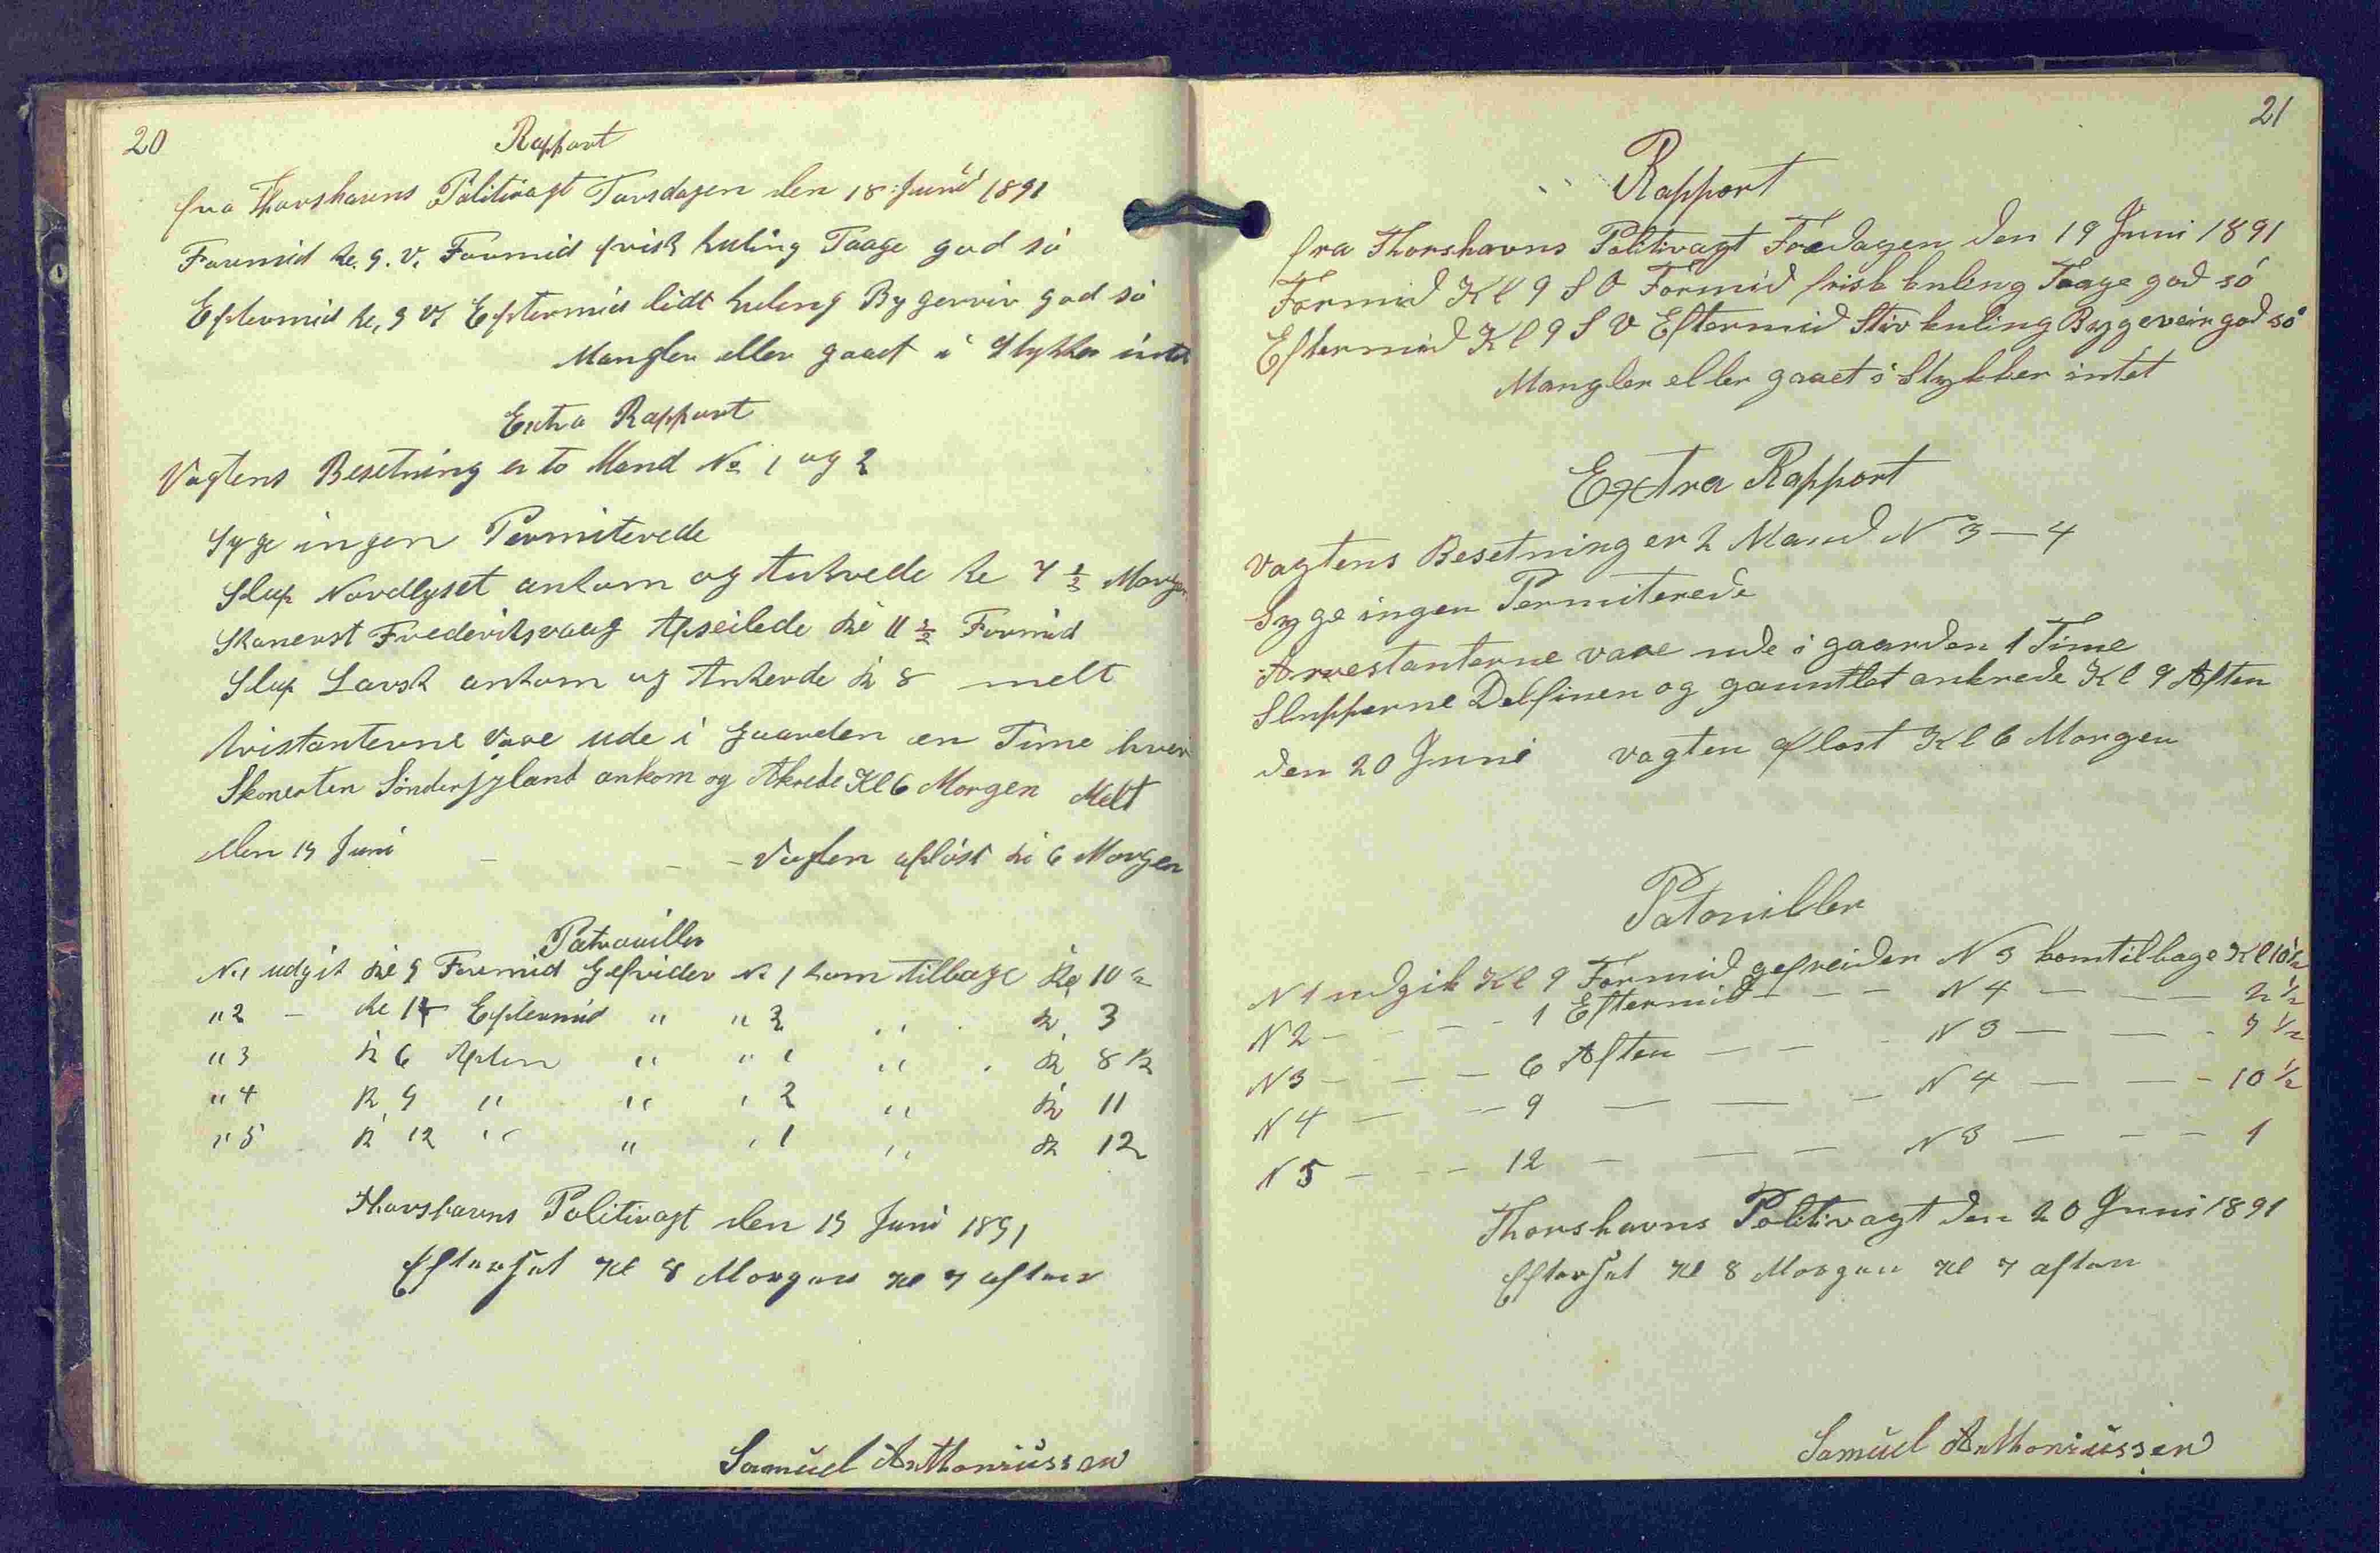 20
Rapport
fra Thorshavns Politivagt Torsdagen den 18 Juni 1891
Formid kl. 9. V. Formid frisk kuling Taage god sö
Eftermid kl, 9 V Eftermid lidt kuling Bygerveir god sö
Mangler eller gaaet i Stykker intet
Extra Rapport
Vagtens Besetning er to Mand No 1 og 2
Syge ingen Permiterede
Slup Nordlyset ankom og Ankrede kl 7 1/2 Morgen
Skonerst Frederiksvaag Afseilede kl 11 1/2 Formid
Slup Larsk ankom og Ankerde kl 8 melt
Aristanterne vare ude i Gaarden en Time hver
Skonerten Sönderjyland ankom og Akrede Kl 6 Morgen Melt
den 19 Juni - - - Vagten aflöst kl 6 Morgen
Patrouiller
No 1 udgik kl 9 Formid Gefrider No 1 kom tilbage kl 10 1/2
" 2 - kl 1 Eftermid " " 2 " . kl 3
" 3 kl 6 Aften " " 1 " . kl 8 1/2
" 4 kl 9 " " " 2 " kl 11
" 5 kl 12 " " " 1 " kl 12
Thorshavns Politivagt den 19 Juni 1891
Efterset Kl 8 Morgen Kl 7 aften
Samuel Anthoniussen
21
Rapport
fra Thorshavns Politivagt Fredagen den 19 Juni 1891
Formid Kl 9 S V Formid frisk kuling Taage god só
Eftermid Kl 9 S V Eftermid Stiv kuling Bygeveir god só
Mangler eller gaaet i Stykker intet
Extra Rapport
Vagtens Besetning er 2 Mand N 3 — 4
Syge ingen Permiterede
Arrestanterne vare ude i gaarden 1 Time
Slupperne Delfinen og gauntlet ankrede Kl 9 Aften
den 20 Juni vagten aflost Kl 6 Morgen
Patouiller
N 1 udgik Kl 9 Formid gefreiden N 3 kom tilbage Kl 10 1/2
N 2 - - - - 1 Eftermid - - - N 4 — — — 2 1/2
N 3 - - - - 6 Aften — — - N 3 — — - 7 1/2
N 4 — - - 9 — — — N 4 — — - 10 1/2
N 5 — - - 12 — — — N 3 — - - 1
Thorshavns Politivagt den 20 Juni 1891
Efterset Kl 8 Morgen Kl 7 aften
Samuel Anthoniussen